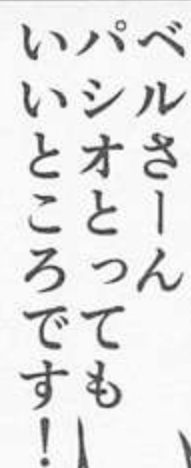 ベルさーん
パシオとっても
いいところです！